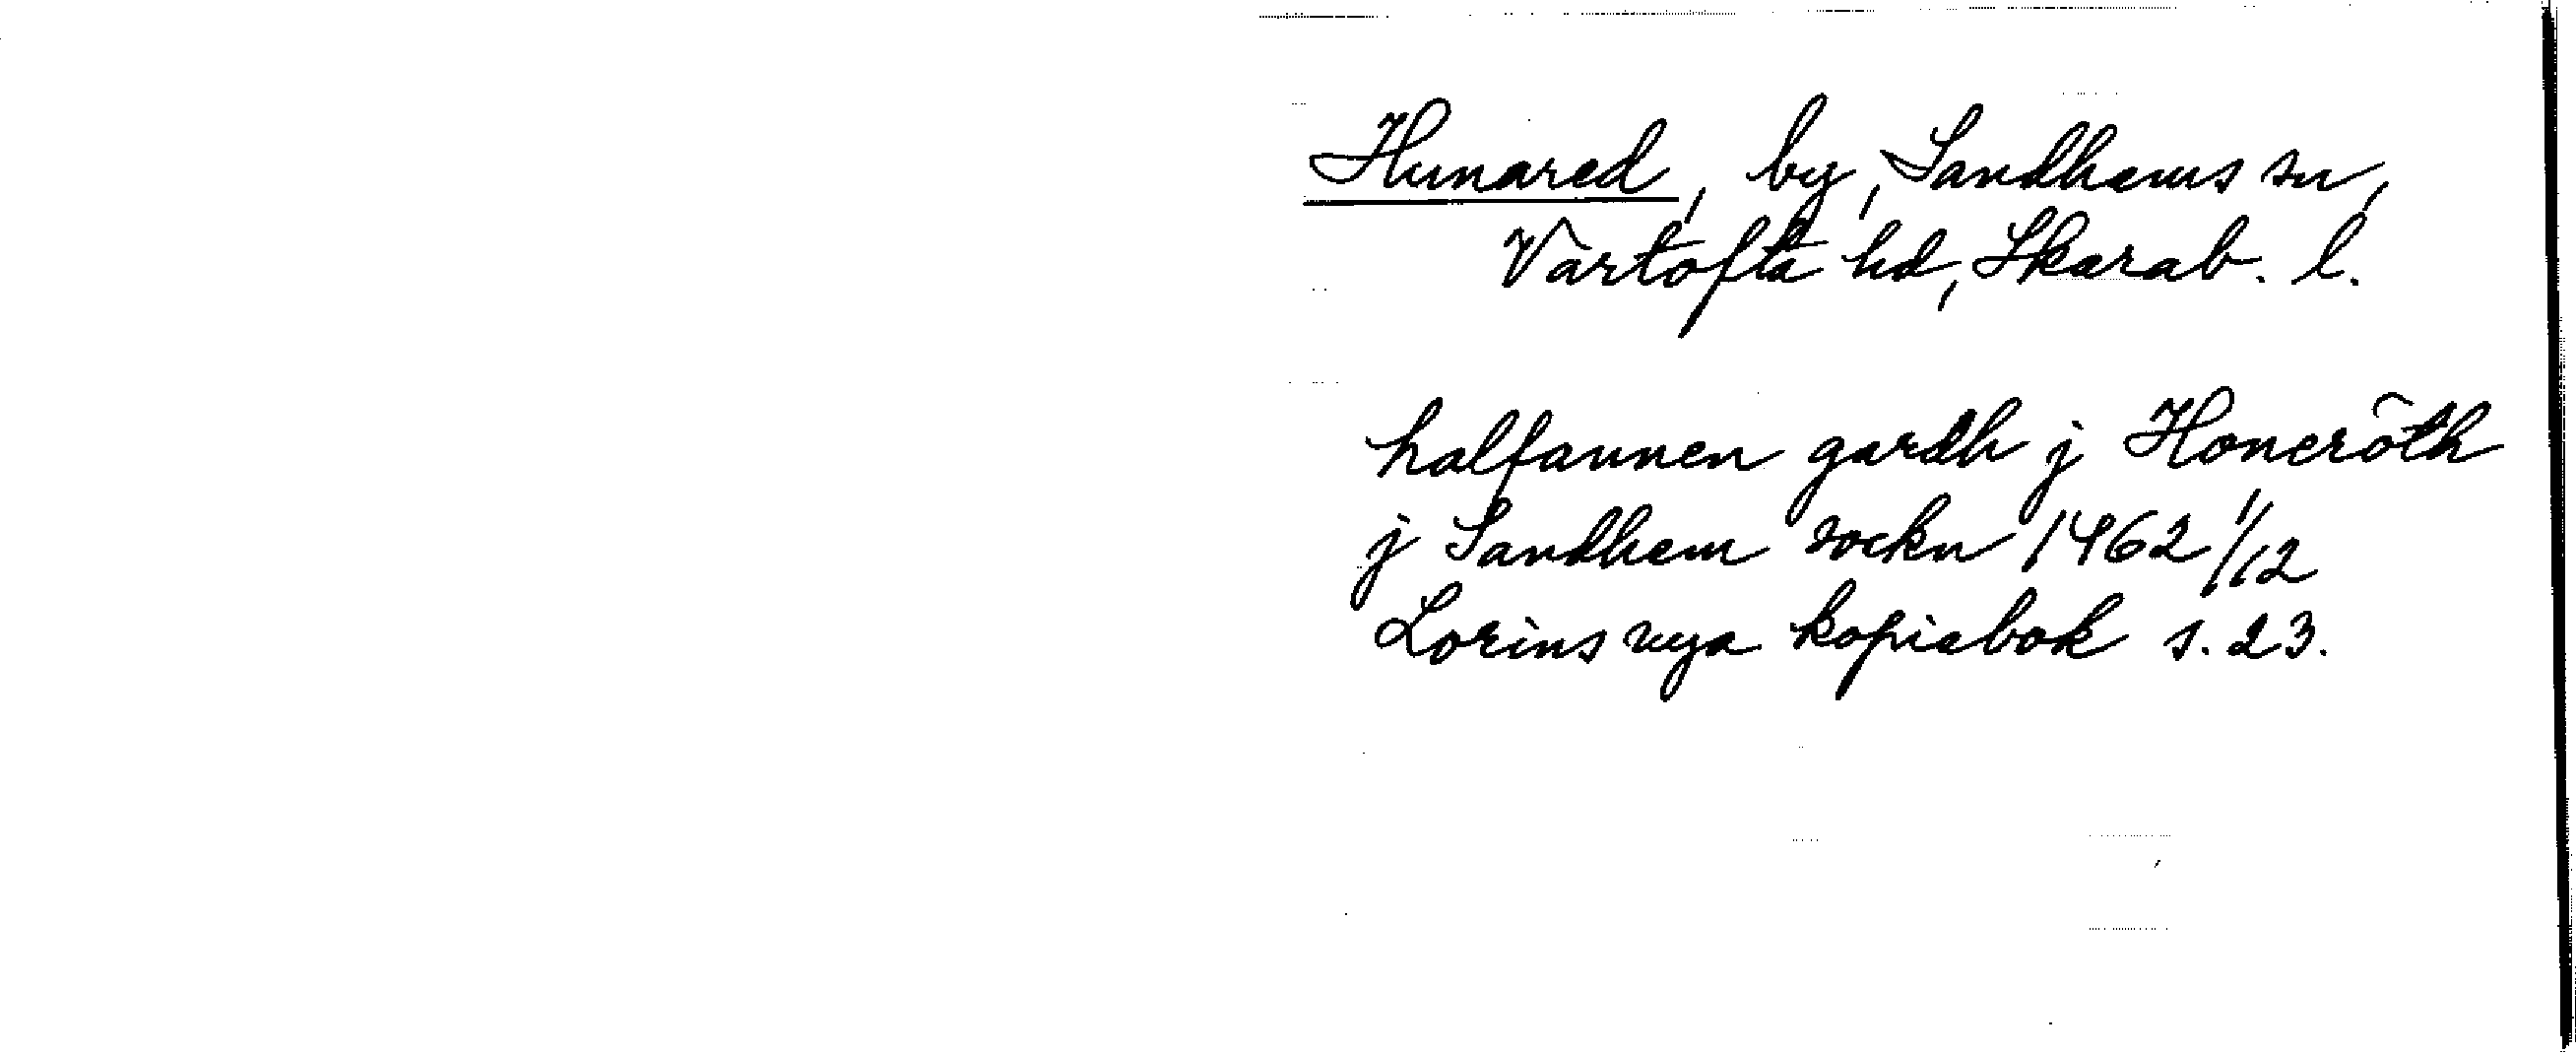 Hunared, by, Sandhems sn,
Vartofta hd, Skarab. l.
halfannen gardh j Honerôth
j Sandhem sockn 1462 1/12
Lorins nya kopiebok s. 23.